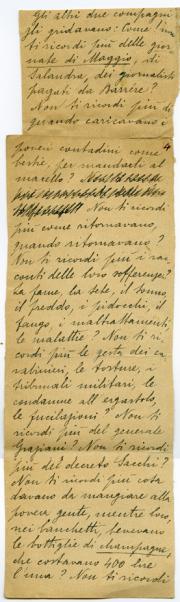 gli altri due compagni
gli gridavano: Come l'
ti ricordi più delle gior-
nate di Maggio, di
Salandra, dei giornalisti
pagati da Barrère?
Non ti ricordi più di
quando caricavano i
4
poveri contadini come
bestie, per mandarli al
macello?
Non ti ricordi
più come ritornavano,
quando ritornavano?
Non ti ricordi più i rac-
conti delle loro sofferenze?
La fame, la sete, il sonno,
il freddo, i pidocchi, il
fango, i maltrattamenti,
le malattie? Non ti ri-
cordi più le gesta dei ca-
rabinieri, le torture, i
tribunali militari, le
condanne all'ergastolo,
le fucilazioni? Non ti
ricordi più del generale
Graziani? Non ti ricordi
più del decreto Sacchi?
Non ti ricordi più cosa
davano da mangiare alla
povera gente, mentre loro,
nei banchetti, bevevano
le bottiglie di champagne,
che costavano 400 lire
l'una? Non ti ricordi